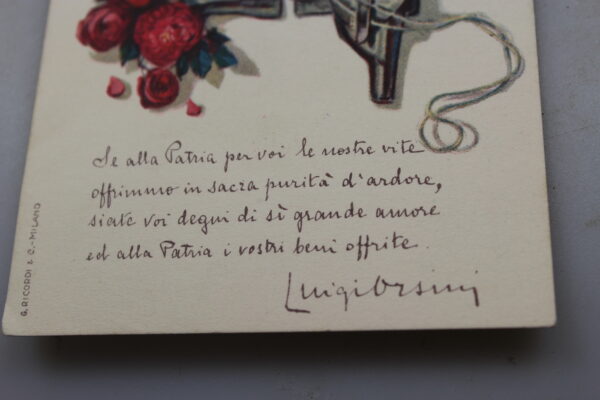 Se alla Patria per voi le nostre vite
offrimmo in sacra purità d'ardore,
siate voi degni di sì grande amore
ed alla Patria i vostri beni offrite.
Luigi Orsini
G. RICORDI & C. - MILANO